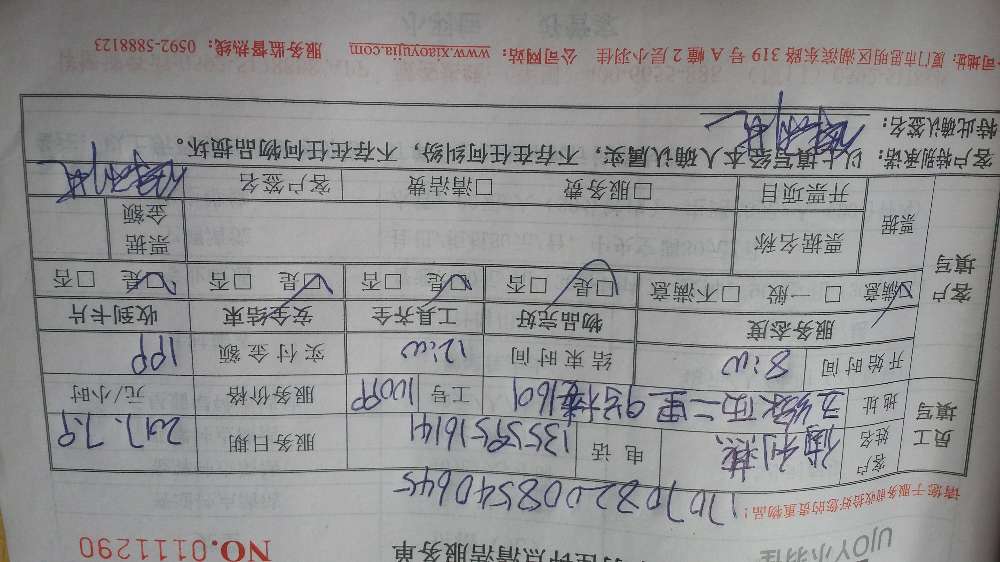 UJOY小羽佳
钟点清洁服务单
NO.0111290
请您于服务前收拾好您的贵重物品！
17070822008540645
员工填写
客户姓名
电话 13559516141
服务日期 2017.7.9
地址
二里9号楼1601
工号
服务价格
元/小时
开始时间 8:00
结束时间 12:00
实付金额
服务态度 物品完好 工具齐全 安全结束 收到卡片
客户填写
☑满意 □一般 □不满意 ☑是 □否 ☑是 □否 ☑是 □否 ☑是 □否
票据 票据名称 票据金额
开票项目 □服务费 □清洁费 客户签名
客户特别承诺：以上填写经本人确认属实，不存在任何纠纷，不存在任何物品损坏。
特此确认签名：
公司地址：厦门市思明区湖滨东路 319 号 A 幢 2 层小羽佳 公司网站：www.xiaoyujia.com 服务监督热线：0592-5888123